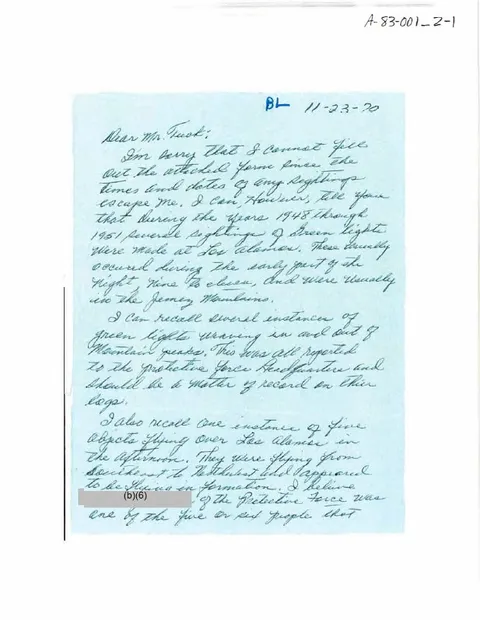 A-83-001_Z-1
BL 11-23-70
Dear Mr. Tuck:
I'm sorry that I cannot fill
out the attached form since the
times and dates of any sightings
escape me. I can, however, tell you
that during the years 1948 through
1951, several sightings of Green lights
were made at Los Alamos. These usually
occured during the early part of the
night, nine to eleven, and were usually
in the Jemez Mountains.
I can recall several instances of
green lights weaving in and out of
Mountain peaks. This was all reported
to the Protective Force Headquarters and
should be a matter of record on their
logs.
I also recall one instance of five
objects flying over Los Alamos in
the afternoon. They were flying from
to and appeared
to be flying in formation. I believe
(b)(6) of the Protective Force was
one of the five or six people that